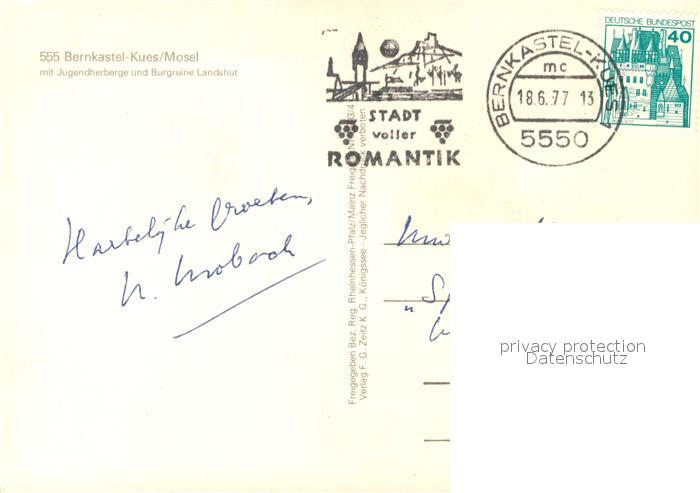 555 Bernkastel-Kues/Mosel
mit Jugendherberge und Burgruine Landshut
STADT
voller
ROMANTIK
BERNKASTEL-KUES 1
mc
18.6.77 13
5550
DEUTSCHE BUNDESPOST
40
Hartelijke Groeten,
Freigegeben Bez. Reg. Rheinhessen-Pfalz/Mainz
Verlag F. G. Zeitz K. G., Königssee - Jeglicher Nachdruck verboten
privacy protection
Datenschutz